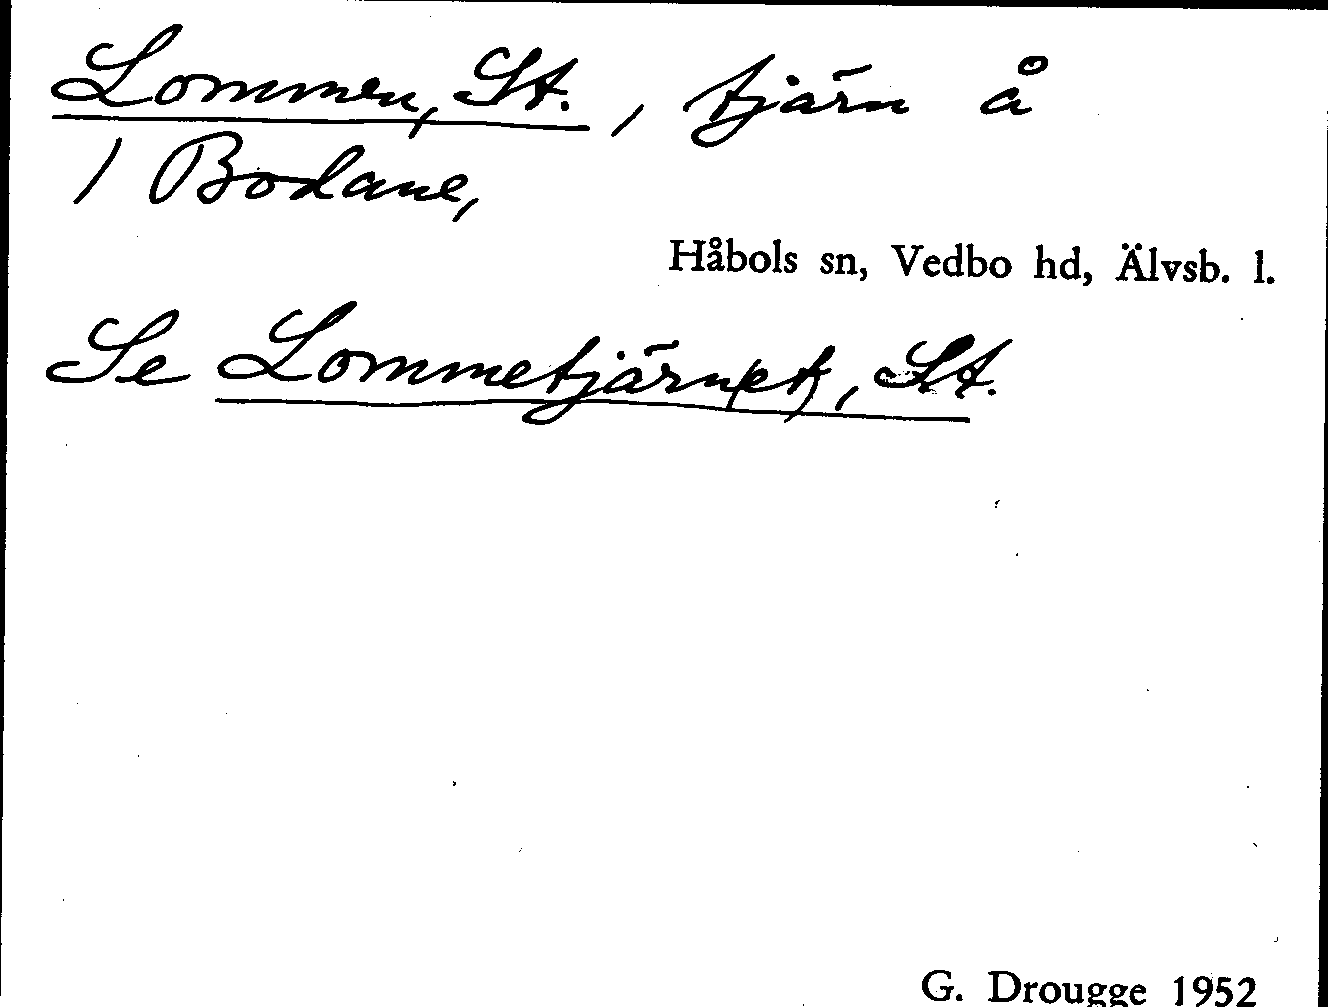 Lommen, St., tjärn å
1 Bodane,
Håbols sn, Vedbo hd, Älvsb. l.
Se Lommetjärn(et), St.
G. Drougge 1952